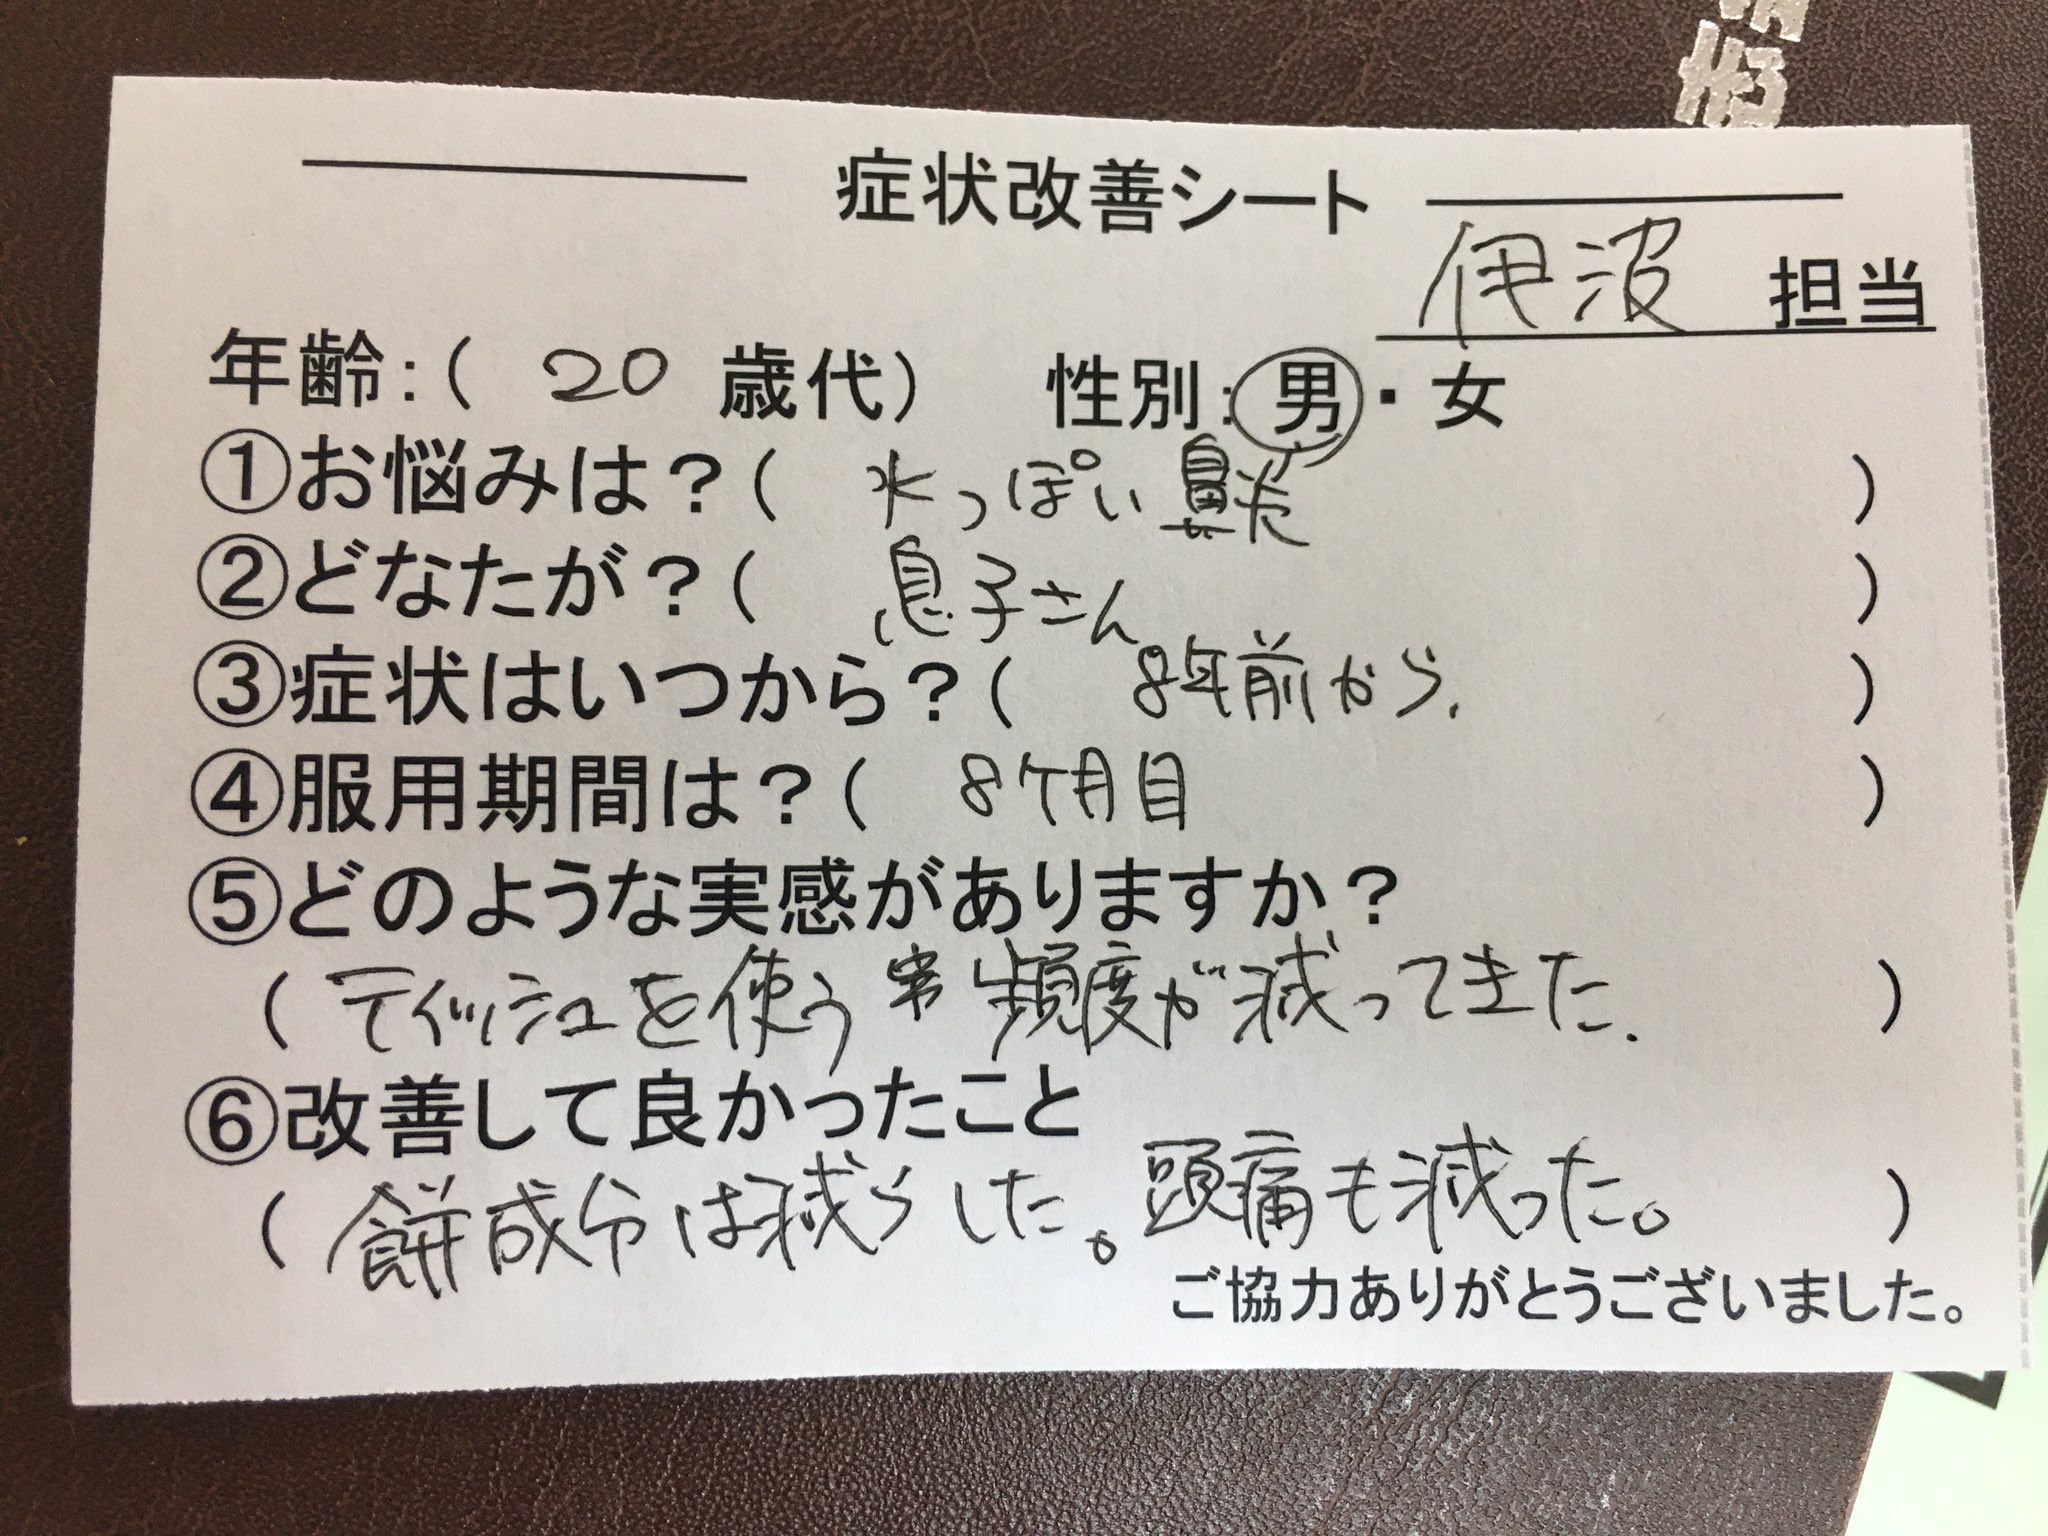 症状改善シート
伊波 担当
年齢:( 20 歳代) 性別:男・女
①お悩みは?( 水っぽい鼻炎 )
②どなたが?( 息子さん )
③症状はいつから?( 8年前から. )
④服用期間は?( 8ケ月目 )
⑤どのような実感がありますか?
( ティッシュを使う 頻度が減ってきた. )
⑥改善して良かったこと
( 餅成分は減らした。頭痛も減った。 )
ご協力ありがとうございました。